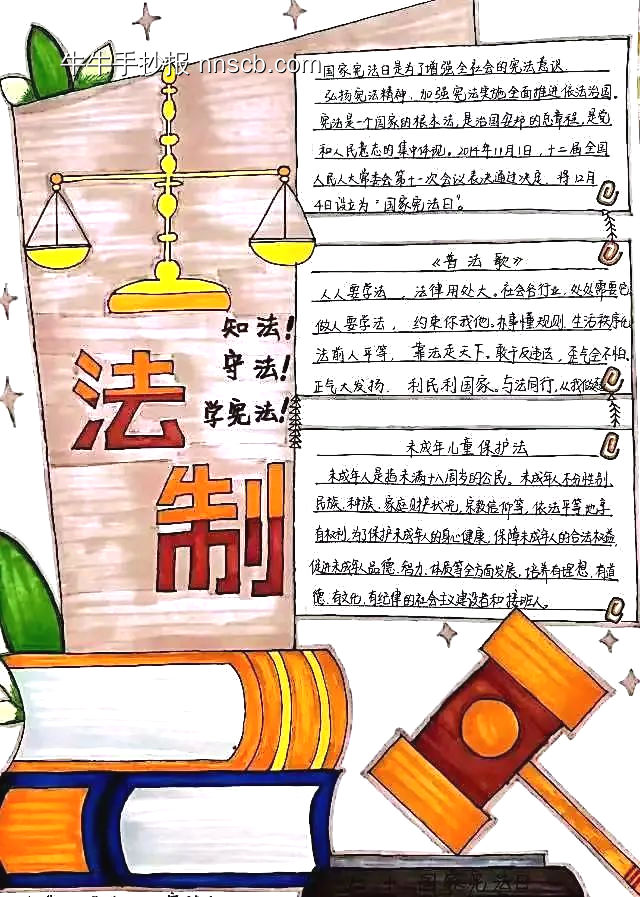 牛牛手抄报 nnscb.com
国家宪法日是为了增强全社会的宪法意识
弘扬宪法精神，加强宪法实施全面推进依法治国。
宪法是一个国家的根本法，是治国安邦的总章程，是党
和人民意志的集中体现。2014年11月1日，十二届全国
人民人大常委会第十一次会议表决通过决定，将12月
4日设立为“国家宪法日”。
《普法歌》
人人要学法，法律用处大。社会各行业，处处需要它
做人要学法，约束你我他。办事懂规则，生活秩序化
法前人平等，靠法走天下。敢于反违法，歪气全不怕。
正气大发扬，利民利国家。与法同行，从我做起
知法！
守法！
学宪法！
法
制
未成年儿童保护法
未成年人是指未满十八周岁的公民。未成年人不分性别、
民族、种族、家庭财产状况、宗教信仰等，依法平等地享
有权利，为了保护未成年人的身心健康，保障未成年人的合法权益，
促进未成年人品德、智力、体质等全方面发展，培养有理想、有道
德、有文化、有纪律的社会主义建设者和接班人。
国家宪法日